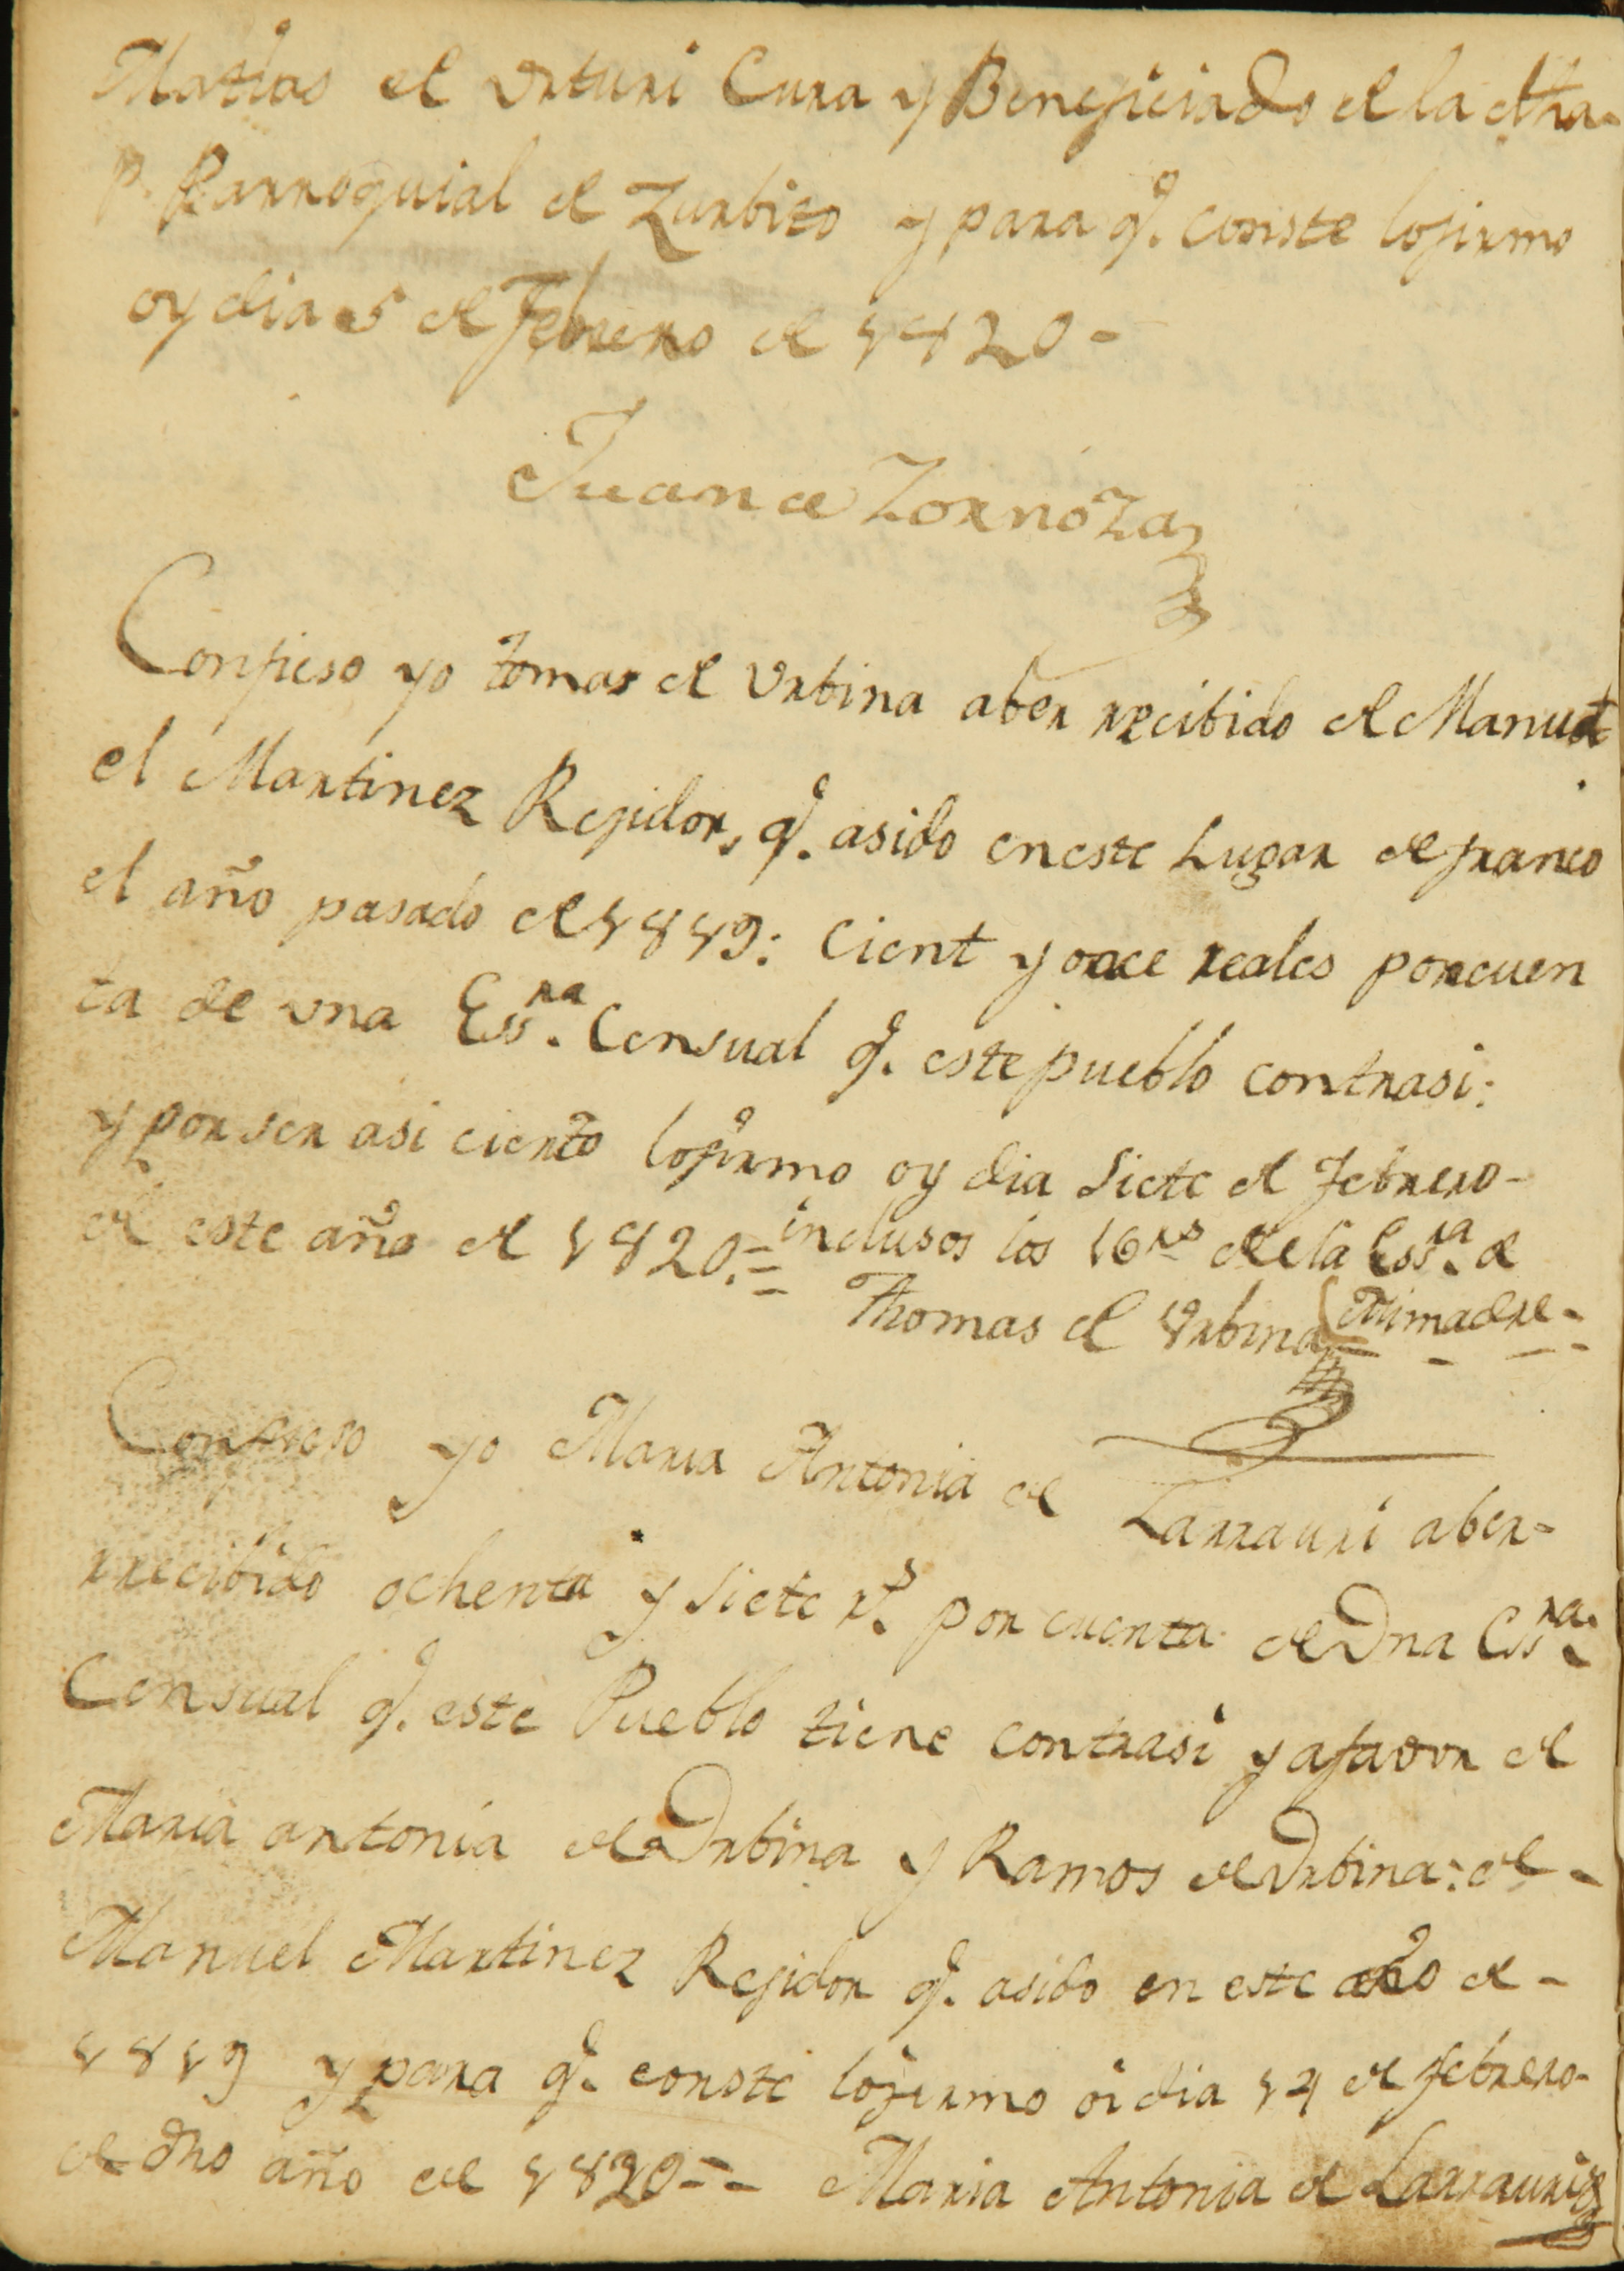 Matias de Vrturi Cura y Beneficiado de la otra
P. Parroquial de Zurbito y para q.e conste lo firmo
oy dia 5 de Febrero de 1820-
Juan de Zornoza
Confieso yo tomas de Vrbina aber rrecibido de Manu
el Martinez Rejidor, q.e asido en este Lugar de franco
el año pasado de 1819: Cient y once reales por cuen
ta de vna Ess.ra Censual q.e este pueblo contra si:
y por ser asi cierto lo firmo oy dia Siete de Febrero-
de este año de 1820.= inclusos los 16 rs de la Ess.ra de
Thomas de Vrbina Mi madre-
Confieso yo Maria Antonia de Larrauri aber-
rrecibido ochenta y siete r.s por cuenta de Vna Ess.ra
Censual q.e este Pueblo tiene contra si y a favor de
Maria antonia de Vrbina y Ramos de Vrbina: de-
Manuel Martinez Rejidor q.e asido en este año de-
1819 y para q.e conste lo firmo oi dia 14 de febrero-
de dho año de 1820-- Maria Antonia de Larrauri